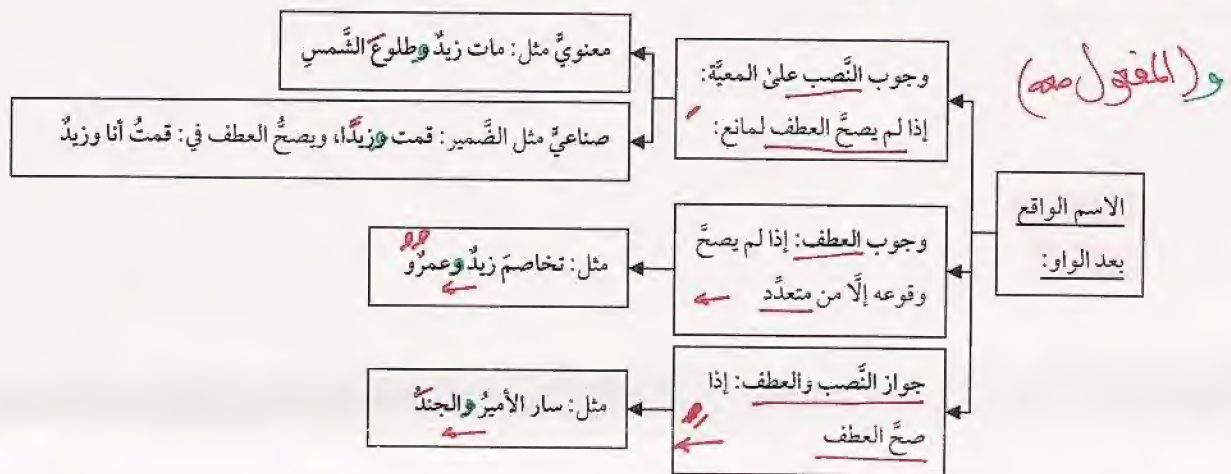 و (المفعول معه)
الاسم الواقع
بعد الواو:
وجوب النَّصب على المعيَّة:
إذا لم يصحَّ العطف لمانع:
معنويٌّ مثل: مات زيدٌ وطلوعَ الشَّمسِ
صناعيٌّ مثل الضَّمير: قمت وزيدًا، ويصحُّ العطف في: قمتُ أنا وزيدٌ
وجوب العطف: إذا لم يصحَّ
وقوعه إلَّا من متعدِّد
مثل: تخاصمَ زيدٌ وعمرٌو
جواز النَّصب والعطف: إذا
صحَّ العطف
مثل: سار الأميرُ والجندُ